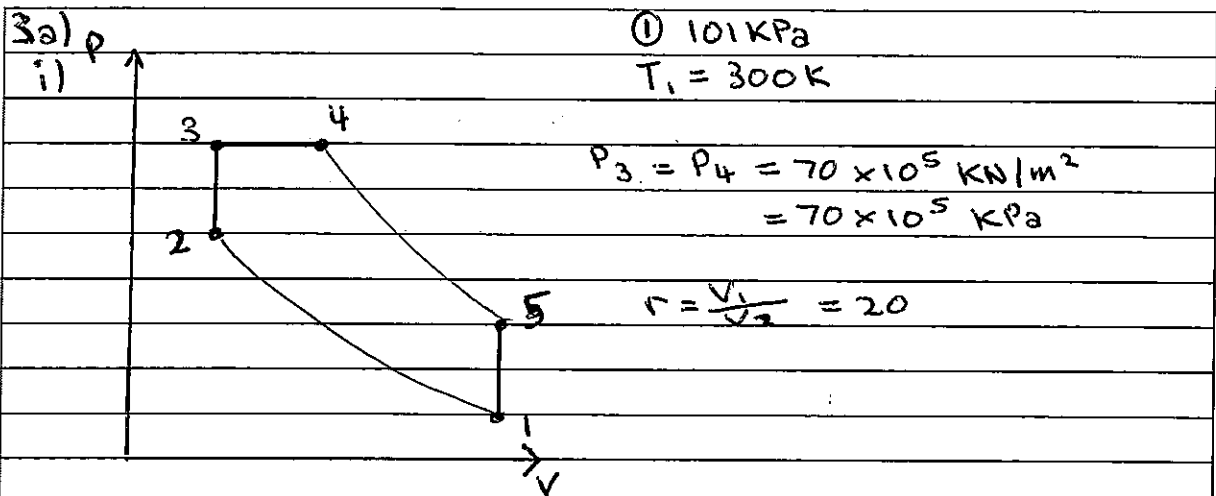 3a) P ① 101 KPa
i) T₁ = 300 K
3 4
P₃ = P₄ = 70 × 10⁵ KN/m²
= 70 × 10⁵ KPa
2
5 r = V₁/V₂ = 20
1
V